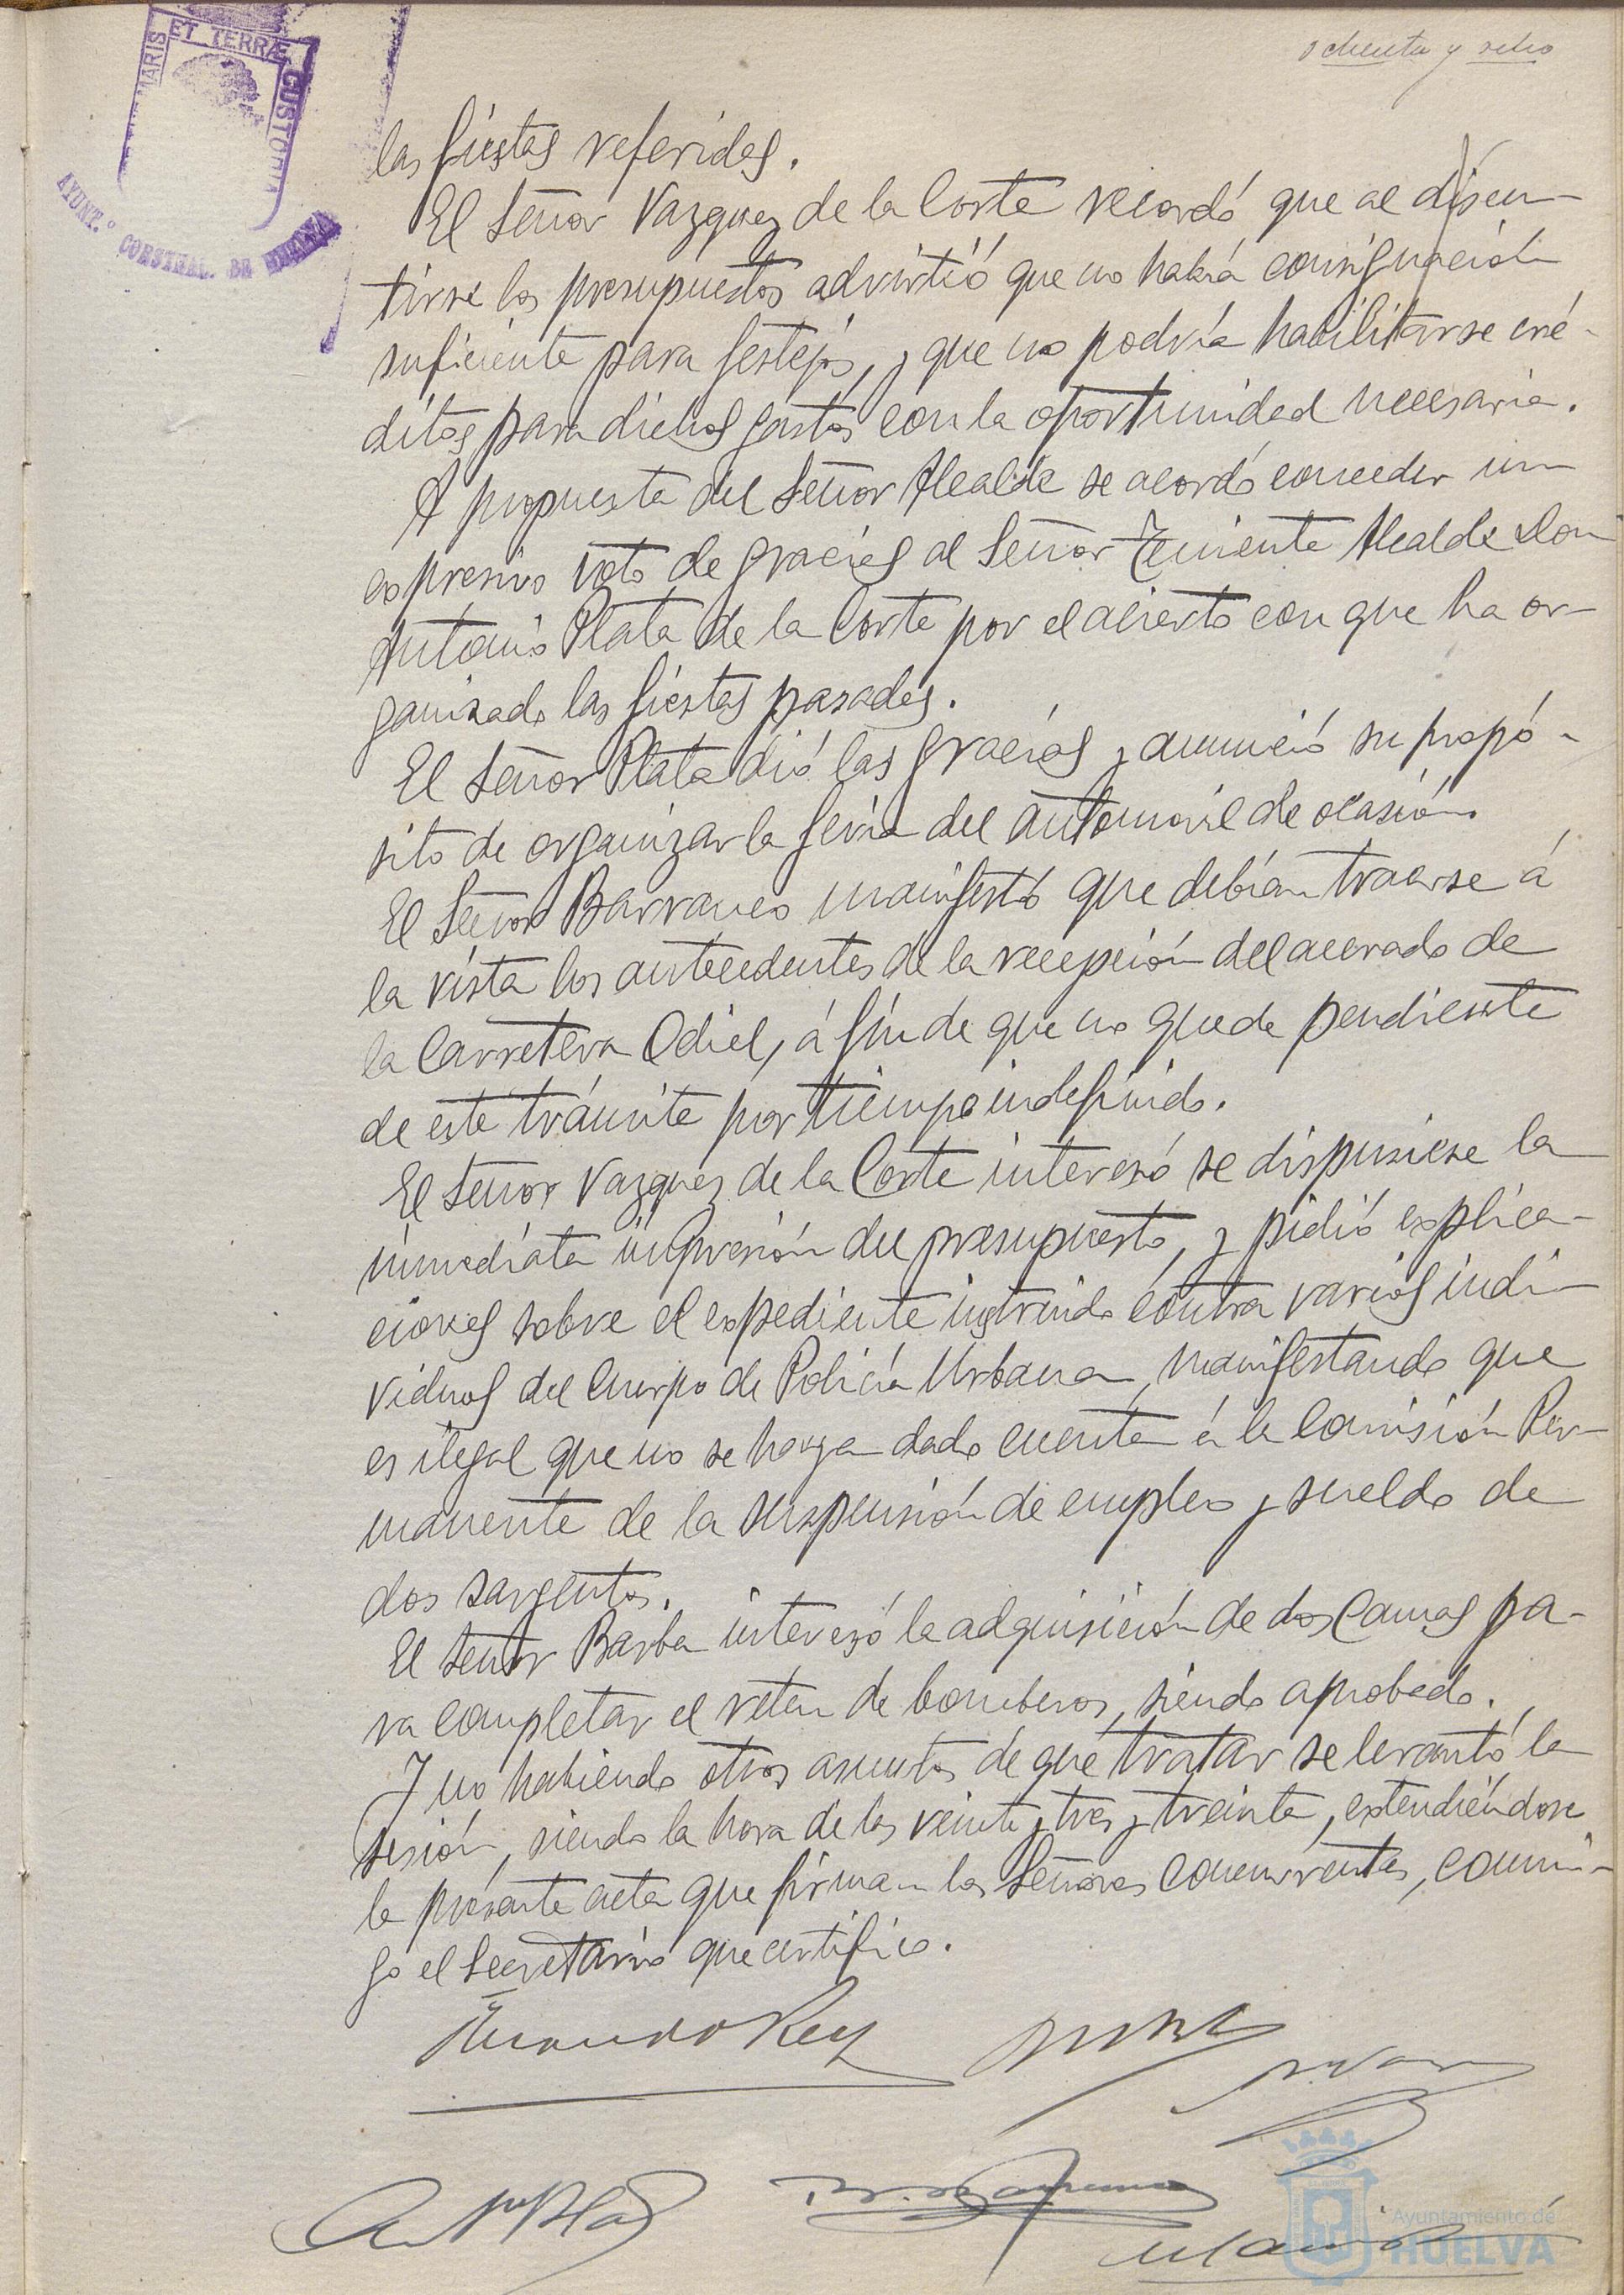 ochenta y ocho
MARIS ET TERRÆ CUSTODIA
AYUNT.º CONSTNAL. DE HUELVA
las fiestas referidas.
El Señor Vazquez de la Corte recordó que al discu-
tirse los presupuestos advirtió que no habrá consignación
suficiente para festejos, y que no podría habilitarse cré-
ditos para dichos gastos con la oportunidad necesaria.
A propuesta del Señor Alcalde se acordó conceder un
expresivo voto de gracias al Señor Teniente Alcalde Don
Antonio Plata de la Corte por el acierto con que ha or-
ganizado las fiestas pasadas.
El Señor Plata dió las gracias y anunció su propó-
sito de organizar la feria del automovil de ocasión.
El Señor Barranco manifestó que debían traerse á
la vista los antecedentes de la recepción del acerado de
la Carretera Odiel, á fín de que no quede pendiente
de este trámite por tiempo indefinido.
El Señor Vazquez de la Corte interesó se dispusiese la
inmediata impresión del presupuesto, y pidió explica-
ciones sobre el expediente instruido contra varios indi-
viduos del Cuerpo de Policía Urbana, manifestando que
es ilegal que no se haya dado cuenta á la Comisión Per-
manente de la suspensión de empleo y sueldo de
dos sargentos.
El Señor Barba interesó la adquisición de dos camas pa-
ra completar el reten de bomberos, siendo aprobado.
Y no habiendo otros asuntos de qué tratar se levantó la
sesión, siendo la hora de las veinte y tres y treinta, extendiéndose
la presente acta que firman los Señores concurrentes, conmi-
go el Secretario que certifico.
Ayuntamiento de
HUELVA